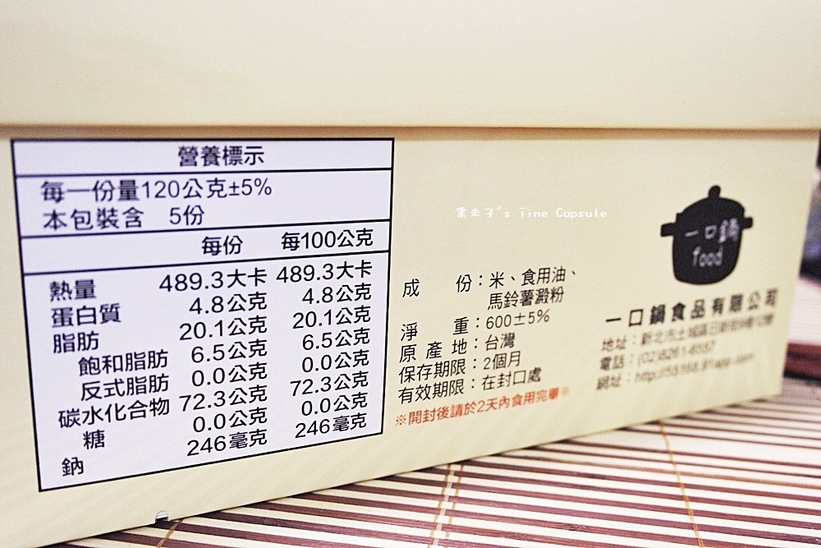 營養標示
每一份量120公克±5%
本包裝含 5份
每份 每100公克
熱量 489.3大卡 489.3大卡
蛋白質 4.8公克 4.8公克
脂肪 20.1公克 20.1公克
飽和脂肪 6.5公克 6.5公克
反式脂肪 0.0公克 0.0公克
碳水化合物 72.3公克 72.3公克
糖 0.0公克 0.0公克
鈉 246毫克 246毫克
's Time Capsule
成 份：米、食用油、
馬鈴薯澱粉
淨 重：600±5%
原 產 地：台灣
保存期限：2個月
有效期限：在封口處
※開封後請於2天內食用完畢※
一口鍋
food
一口鍋食品有限公司
地址：新北市土城區
電話：(02)8261-6557
網址：